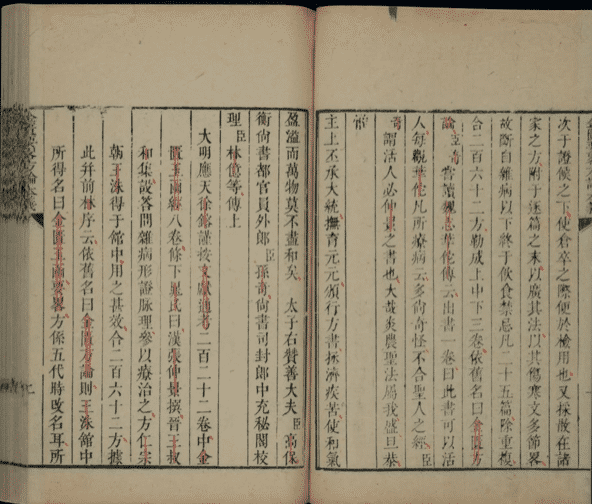 次于證候之下使倉卒之際便於檢用也又採散在諸
家之方附于逐篇之末以廣其法以其傷寒文多節畧
故斷自雜病以下終于飲食禁忌凡二十五篇除重複
合二百六十二方勒成上中下三卷依舊名曰金匱方
論臣奇嘗讀魏志華佗傳云出書一卷曰此書可以活
人每觀華佗凡所療病云多尚奇怪不合聖人之經臣
奇謂活人必仲景之書也大哉炎農聖法屬我盛旦恭
惟
主上丕承大統撫育元元頒行方書拯濟疾苦使和氣
盈溢而萬物莫不盡和矣 太子右贊善大夫臣高保
衡尚書都官員外郎臣孫奇尚書司封郎中充秘閣校
理臣林億等傳上
大明應天徐鎔謹按文獻通考二百二十二卷中金
匱玉函經八卷條下晁氏曰漢張仲景撰晉王叔
和集設答問雜病形證脉理參以療治之方仁宗
朝王洙得于館中用之甚效合二百六十二方據
此并前林序云依舊名曰金匱方論則王洙館中
所得名曰金匱玉函要畧方係五代時改名耳所